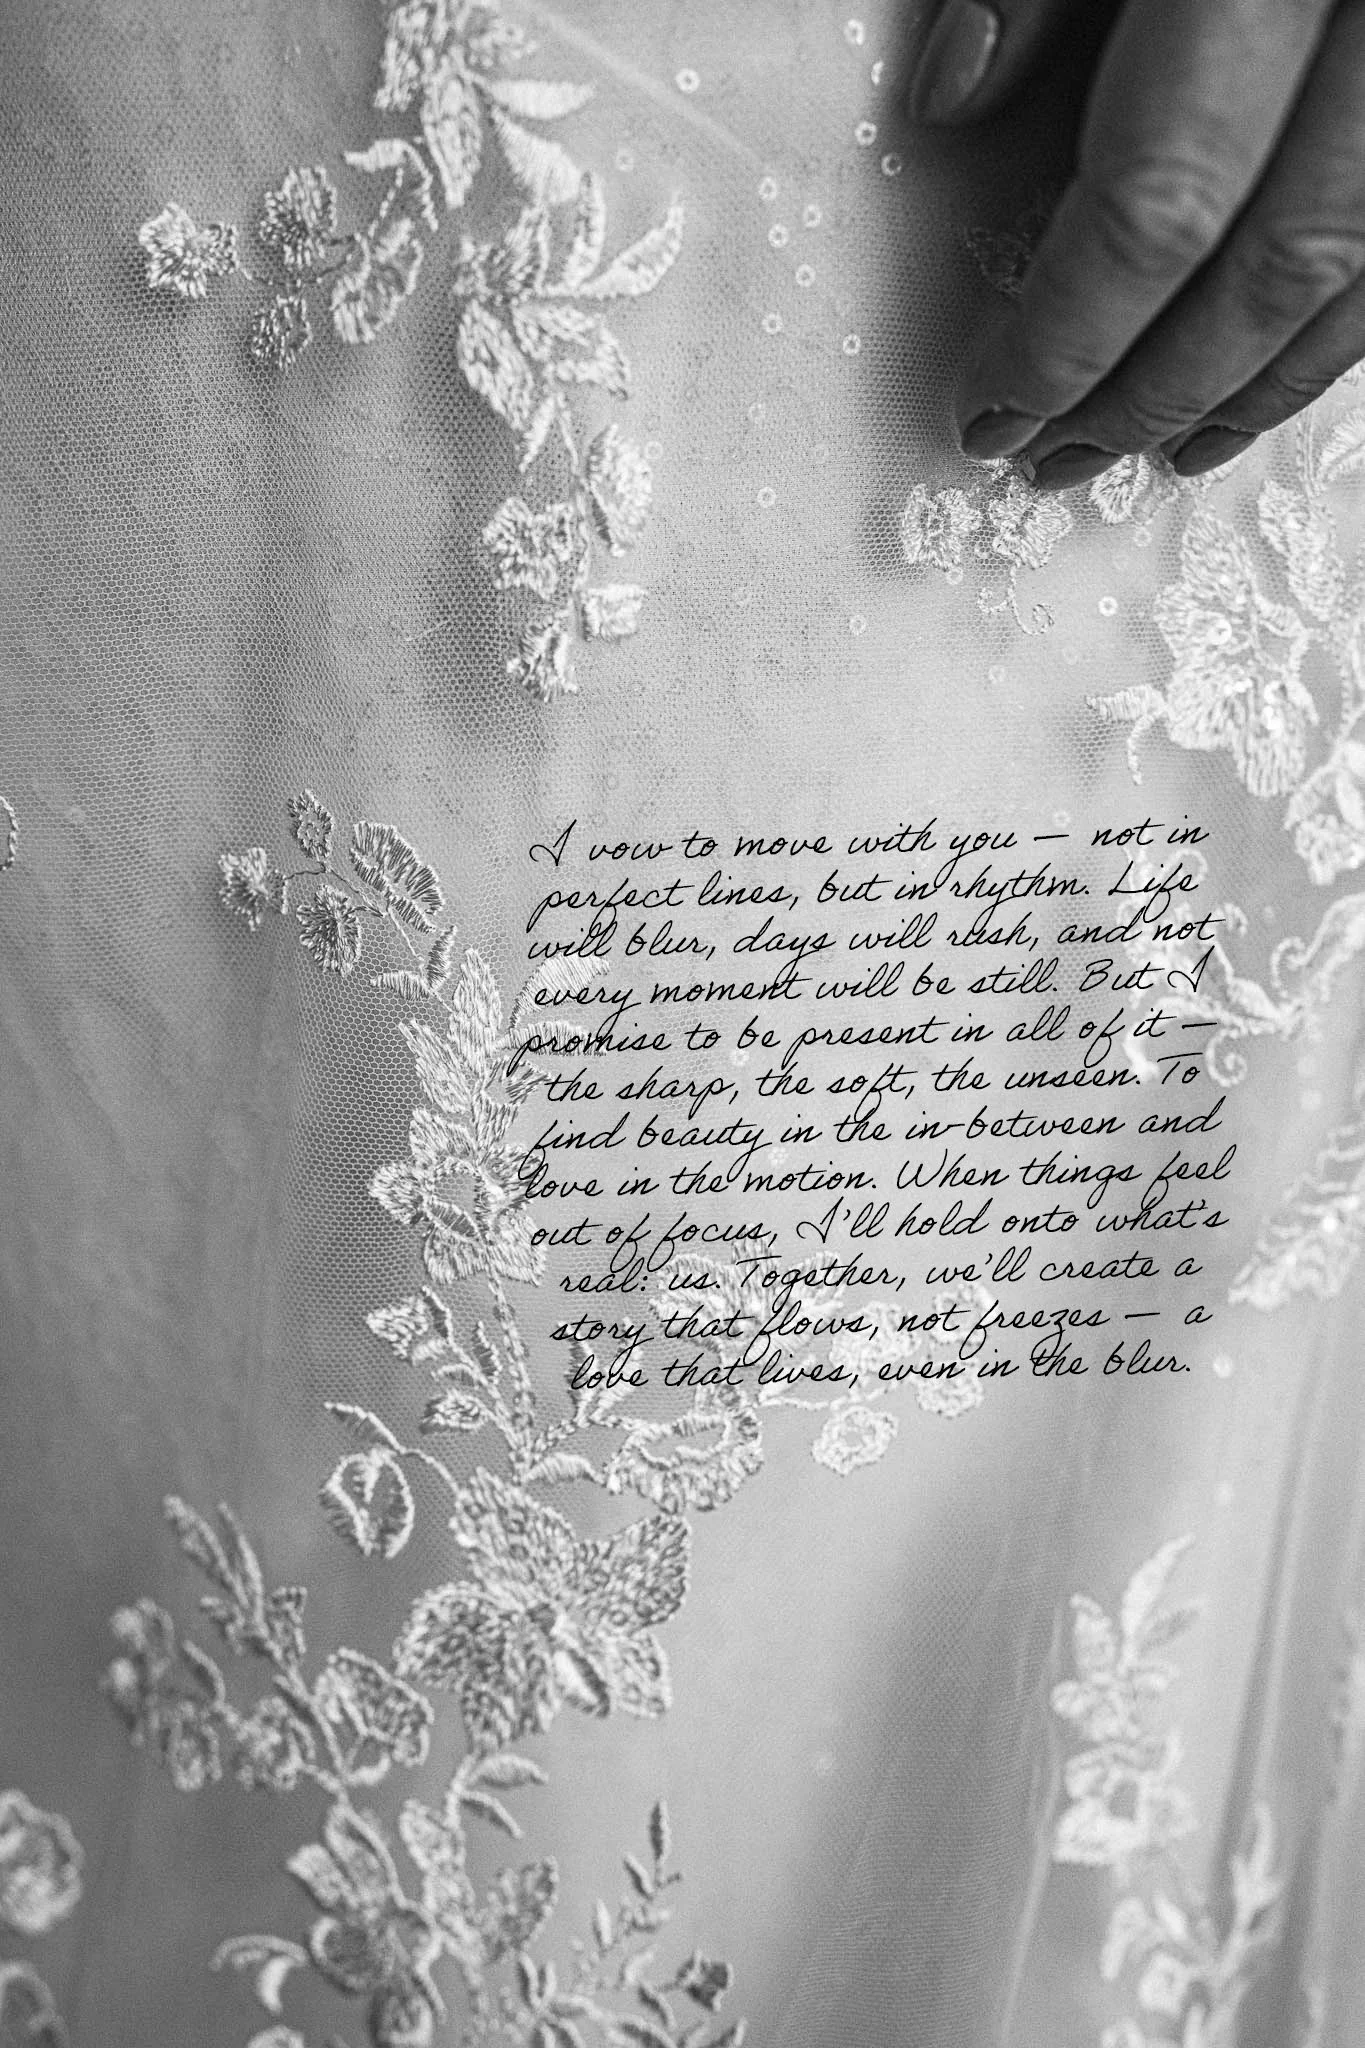 I vow to move with you — not in
perfect lines, but in rhythm. Life
will blur, days will rush, and not
every moment will be still. But I
promise to be present in all of it —
the sharp, the soft, the unseen. To
find beauty in the in-between and
love in the motion. When things feel
out of focus, I'll hold onto what's
real: us. Together, we'll create a
story that flows, not freezes — a
love that lives, even in the blur.